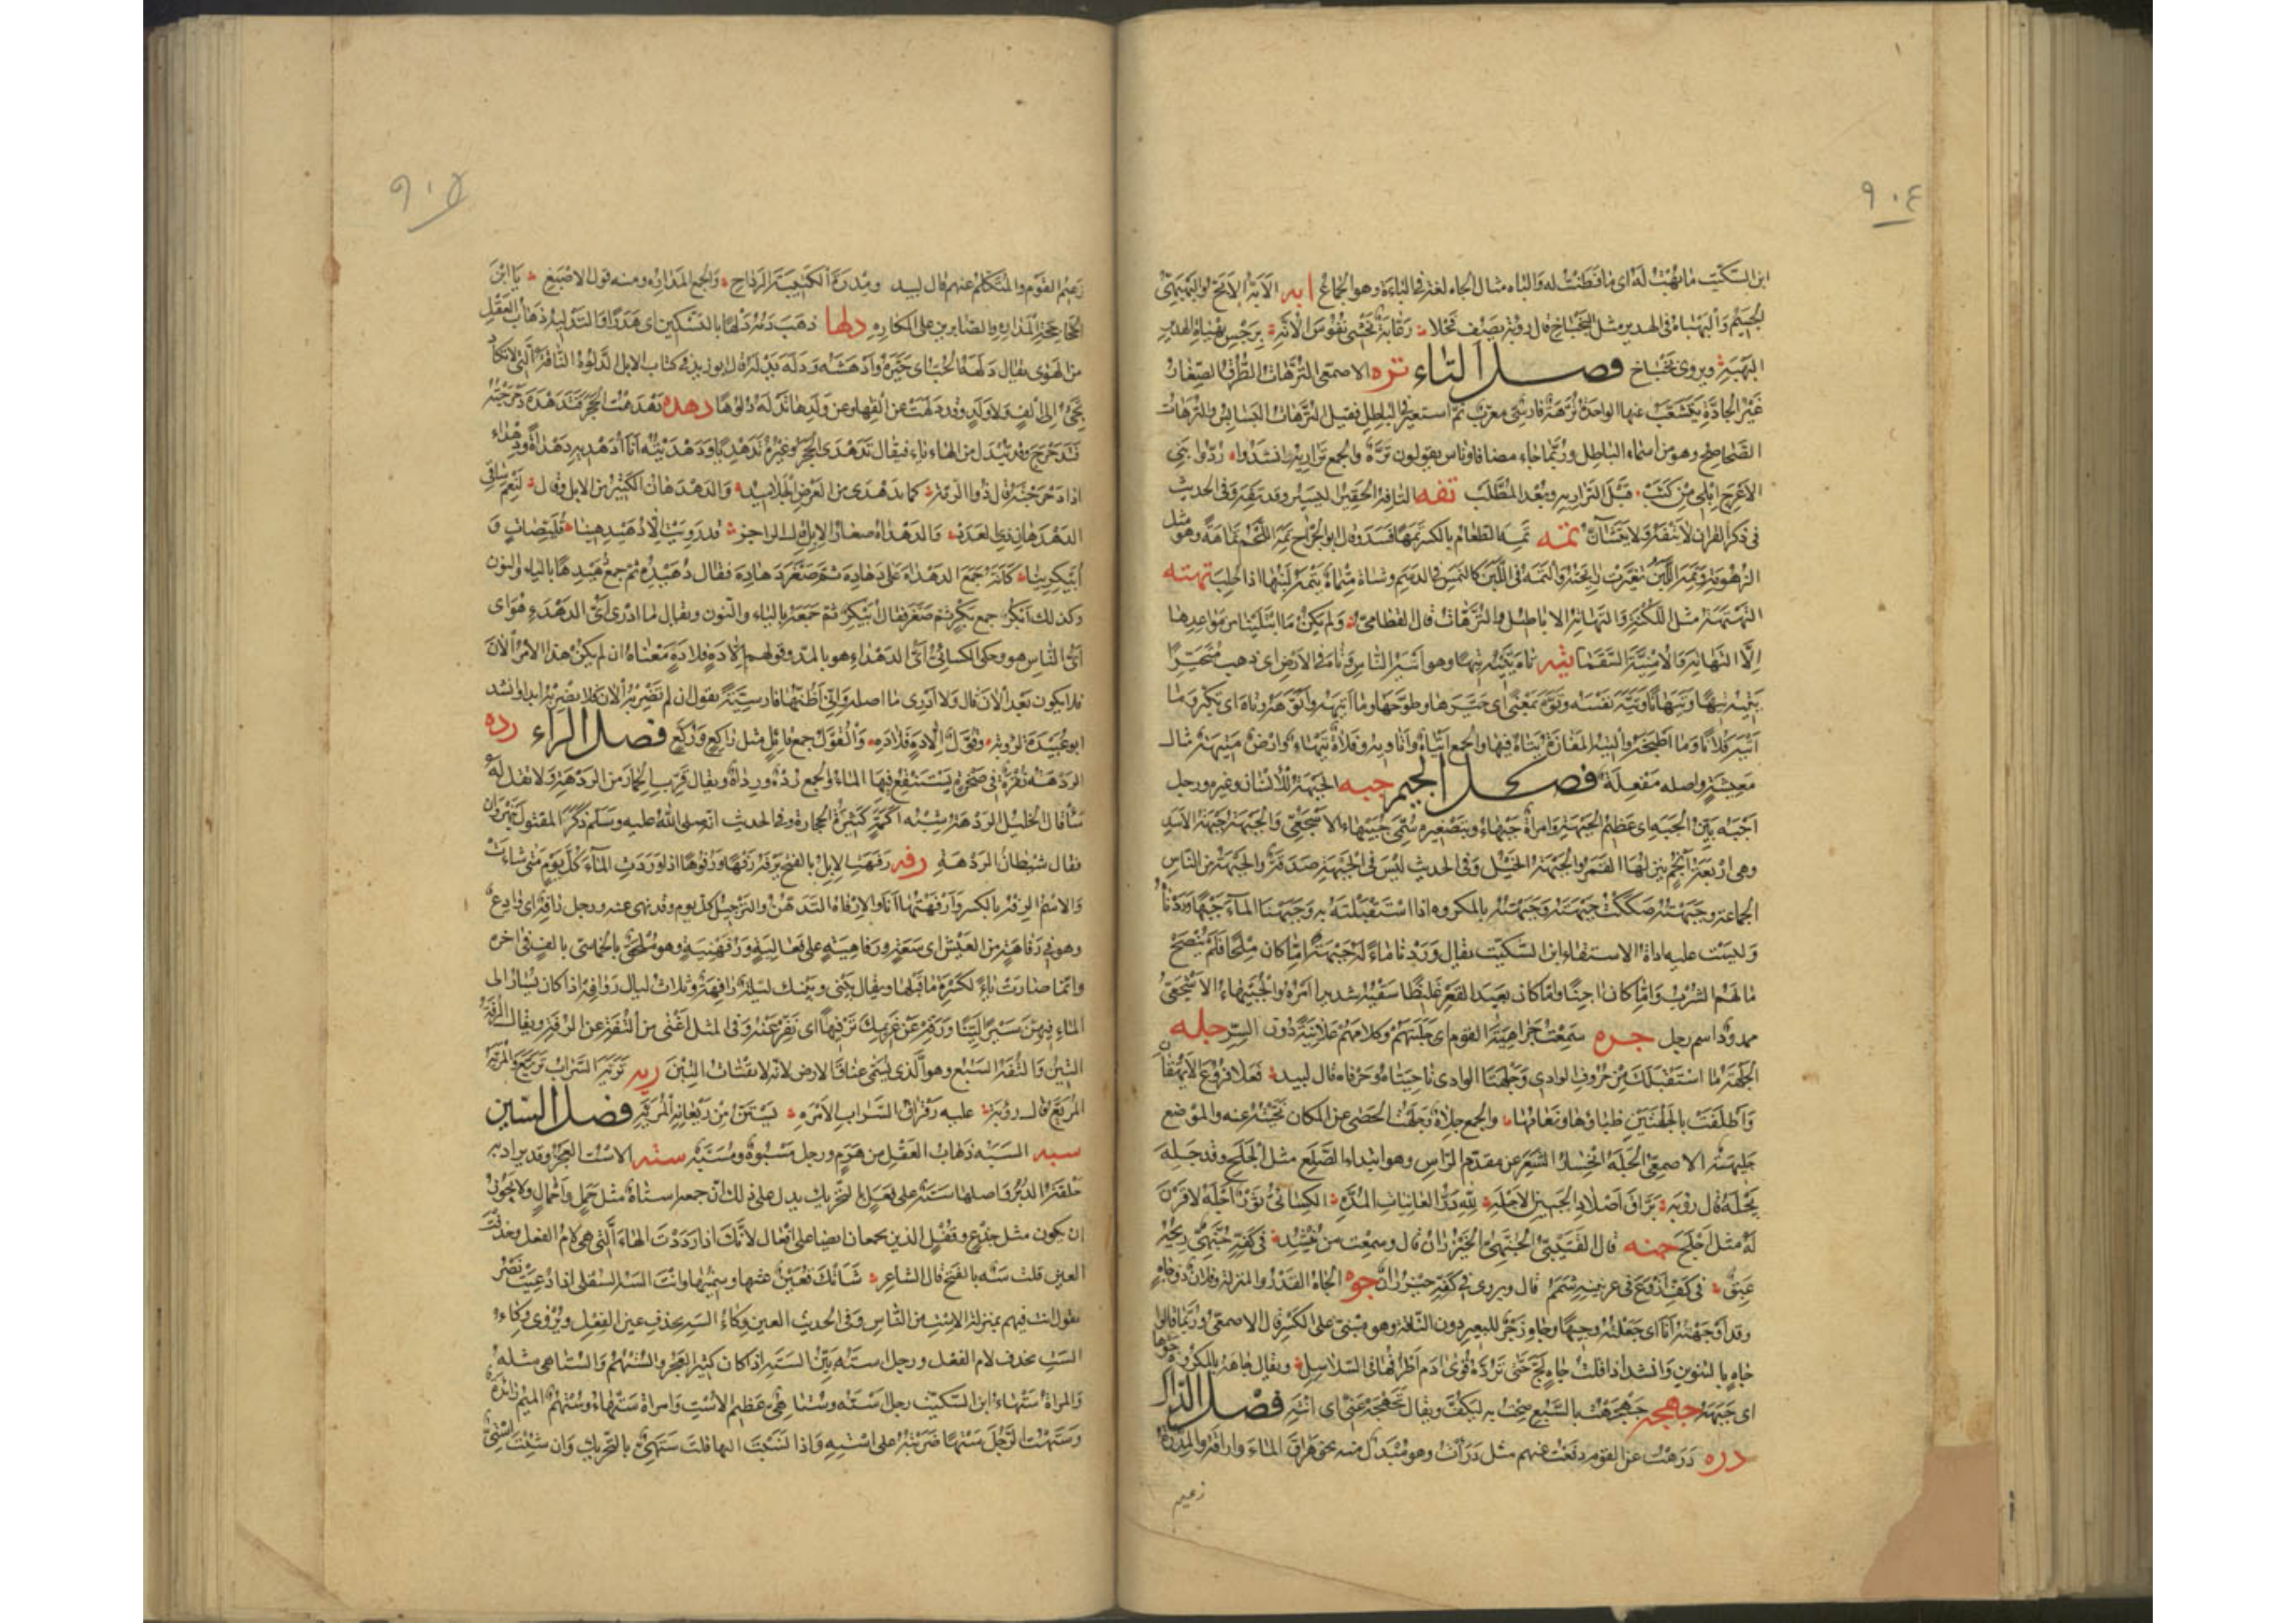 ٩٠٤
ابن السكيت ما بهت له اى ما فطنت له والباه مثال الجاه لغة فى الباءة وهو الجماع ابه الابه الابح
الجسيم والبهباه فى الهدير مثل البخباخ قال رؤبة يصف فحلا
البهبه ويروى بخباخ فصل التاء تره الاصمعى الترهات الطرق الصغار
غير الجادة تتشعب عنها الواحدة ترهة فارسى معرب ثم استعير فى الباطل فقيل الترهات البسابس والترهات
الصحاصح وهو من اسماء الباطل وربما جاء مضافا وناس يقولون تره والجمع تراريه وانشدوا ردوا بنى
الاعرج ابلى من كثب قبل التراريه وبعد المطلب تفه التافه الحقير اليسير وقد تفه وفى الحديث
فى ذكر القران لا يتفه ولا يتشان تمه تمه الطعام بالكسر تمها فسد وقال ابو الجراح تمه اللحم تماهة وهو مثل
الزهومة وتمه اللبن تغيرت رائحته والتمه فى اللبن كالنمس فى الدسم وشاة متماه يتمه لبنها اذا حلب تهته
التهتهة مثل اللكنة والتهاته الاباطيل والترهات قال القطامى ولم يكن ما ابتلينا من مواعدها
الا التهاته والامنية السقما تيه تاه يتيه تيها وهو اتيه الناس وتاه فى الارض اى ذهب متحيرا
يتيه تيها وتيهانا وتيه نفسه وتوه بمعنى اى حيرها وطوحها وما اتيهه واتوهه وتاه اى تكبر وما
اتيه فلانا وما اطيحه والتيه المفازة يتاه فيها والجمع اتياه واتاويه وفلاة تيهاء وارض متيهة مثال
معيشة واصله مفعلة فصل الجيم جبه الجبهة للانسان وغيره ورجل
اجبه بين الجبه اى عظيم الجبهة وامراة جبهاء وبتصغيره سمى جبيهاء الاشجعى والجبهة جبهة الاسد
وهى اربعة انجم ينزلها القمر والجبهة الخيل وفى الحديث ليس فى الجبهة صدقة والجبهة من الناس
الجماعة وجبهته صككت جبهته وجبهته بالمكروه اذا استقبلته به وجبهنا الماء جبها وردناه
وليست عليه اداة الاستقاء ابن السكيت يقال وردنا ماء له جبيهة اما كان ملحا فلم ينضح
مالهم الشرب واما كان اجنا واما كان بعيد القعر غليظا سقيه شديدا امره والجبيهاء الاشجعى
ممدود اسم رجل جره سمعت جراهية القوم اى جلبتهم وكلامهم علانية دون السر جله
الجلهة ما استقبلك من حروف الوادى وجلهتا الوادى ناحيتاه وحرفاه قال لبيد فعلا فروع الايهقان
واطفلت بالجلهتين ظباؤها ونعامها والجمع جلاه وجلهت الحصى عن المكان نحيته عنه والموضع
جليهة الاصمعى الجله انحسار الشعر عن مقدم الراس وهو ابتداء الصلع مثل الجلح وقد جله
يجله قال رؤبة براق اصلاد الجبين الاجله لله در الغانيات المده الكسائى ثور اجله لا قرن
له مثل اجلح جنه قال القتيبى الجنهى الخيزران قال وسمعت من ينشد فى كفه جنهى ريحه
عبق فى كف اروع فى عرنينه شمم قال ويروى فى كفه خيزران جوه الجاه القدر والمنزلة وفلان ذو جاه
وقد اوجهته انا اى جعلته وجيها وجاه زجر للبعير دون الناقة وهو مبنى على الكسر قال الاصمعى وربما قالوا
جاه بالتنوين وانشد اذا قلت جاه لج حتى ترده قوى ادم اطرافها فى السلاسل ويقال جاهه بالمكروه جوها
اى جبهه جهجه جهجهت بالسبع صحت به ليكف ويقال تجهجه عنى اى انته فصل الدال
دره درهت عن القوم دفعت عنهم مثل درأت وهو مبدل منه نحو هراق الماء واراقه والمدره
زعيم
٩٠٥
زعيم القوم والمتكلم عنهم قال لبيد ومدره الكتيبة الرداح والجمع المداره ومنه قول الاصبغ يا ابن
الجحاجحة المداره والصابرين على المكاره دلها ذهب دمه دلها بالتسكين اى هدرا والتدليه ذهاب العقل
من الهوى يقال دلهه الحب اى حيره وادهشه ودله يدله قال ابو زيد فى كتاب الابل الدلوه الناقة التى لا تكاد
تجىء الى الف ولا ولد وقد دلهت عن الفها وعن ولدها تدله دلوها دهده دهدهت الحجر فتدهده دحرجته
فتدحرج وقد تبدل من الهاء ياء فيقال تدهدى الحجر وغيره تدهديا ودهديته انا ادهديه دهداة ودهداء
اذا دحرجته قال ذو الرمة كما تدهدى من العرض الجلاميد والدهدهان الكثير من الابل وقال لنعم ساقى
الدهدهان ذى العدد والدهداه صغار الابل قال الراجز قد رويت الا دهيدهينا قليصات و
ابيكرينا كانه جمع الدهداه على دهاده ثم صغر دهاده فقال دهيده ثم جمع دهيدها بالياء والنون
وكذلك ابكر جمع بكر ثم صغر فقال ابيكر ثم جمعه بالياء والنون ويقال ما ادرى اى الدهدء هو اى
اى الناس هو وحكى الكسائى اى الدهداء هو بالمد وقولهم الا ده فلا ده معناه ان لم يكن هذا الامر الان
فلا يكون بعد الان قال ولا ادرى ما اصله وانى اظنها فارسية يقول ان لم تضربه الان فلا تضربه ابدا وانشد
ابو عبيدة لرؤبة وقول الا ده فلا ده والقول جمع قائل مثل راكع وركع فصل الراء رده
الردهة نقرة فى صخرة يستنقع فيها الماء والجمع رده ورداه ويقال قرب الحمار من الردهة ولا تقل له
سأ قال الخليل الردهة شبه اكمة كثيرة الحجارة وفى الحديث انه صلى الله عليه وسلم ذكر المقتول بنهروان
فقال شيطان الردهة رفه رفهت الابل بالفتح ترفه رفها ورفوها اذا وردت الماء كل يوم متى شاءت
والاسم الرفه بالكسر وارفهتها انا والارفاه التدهن والترجيل كل يوم وقد نهى عنه ورجل رافه اى وادع
وهو فى رفاهة من العيش اى سعة ورفاهية على فعالية ورفهنية وهو ملحق بالخماسى بالف فى اخره
وانما صارت ياء لكسرة ما قبلها ويقال بينى وبينك ليلة رافهة وثلاث ليال روافه اذا كان يسار الى
الماء فيهن سيرا لينا ورفه عن غريمك ترفيها اى نفس عنه وفى المثل اغنى من التفه عن الرفه ويقال الرفه
التبن والتفه السبع وهو الذى يسمى عناق الارض لانه لا يقتات التبن ريه تريه السراب تريع والمريه
المريع قال رؤبة عليه رقراق السراب الامره يستن من ريعانه المريه فصل السين
سبه السبه ذهاب العقل من هرم ورجل مسبوه ومسبه سته الاست العجز وقد يراد به
حلقة الدبر واصلها سته على فعل بالتحريك يدل على ذلك ان جمعه استاه مثل جمل واجمال ولا يجوز
ان يكون مثل جذع وقفل الذين يجمعان ايضا على افعال لانك اذا رددت الهاء التى هى لام الفعل وحذفت
العين قلت سه بالفتح قال الشاعر شأتك قعين غثها وسمينها وانت السه السفلى اذا دعيت نصر
يقول انت فيهم بمنزلة الاست من الناس وفى الحديث العين وكاء السه بحذف عين الفعل ويروى وكاء
الست بحذف لام الفعل ورجل استه بين السته اذا كان كبير العجز والستهم والستاهى مثله
والمراة ستهاء ابن السكيت رجل استه وستاهى عظيم الاست وامراة ستهاء وستهم الميم زائدة
وستهت الرجل ستها ضربته على استه واذا نسبت اليها قلت ستهى بالتحريك وان شئت استى